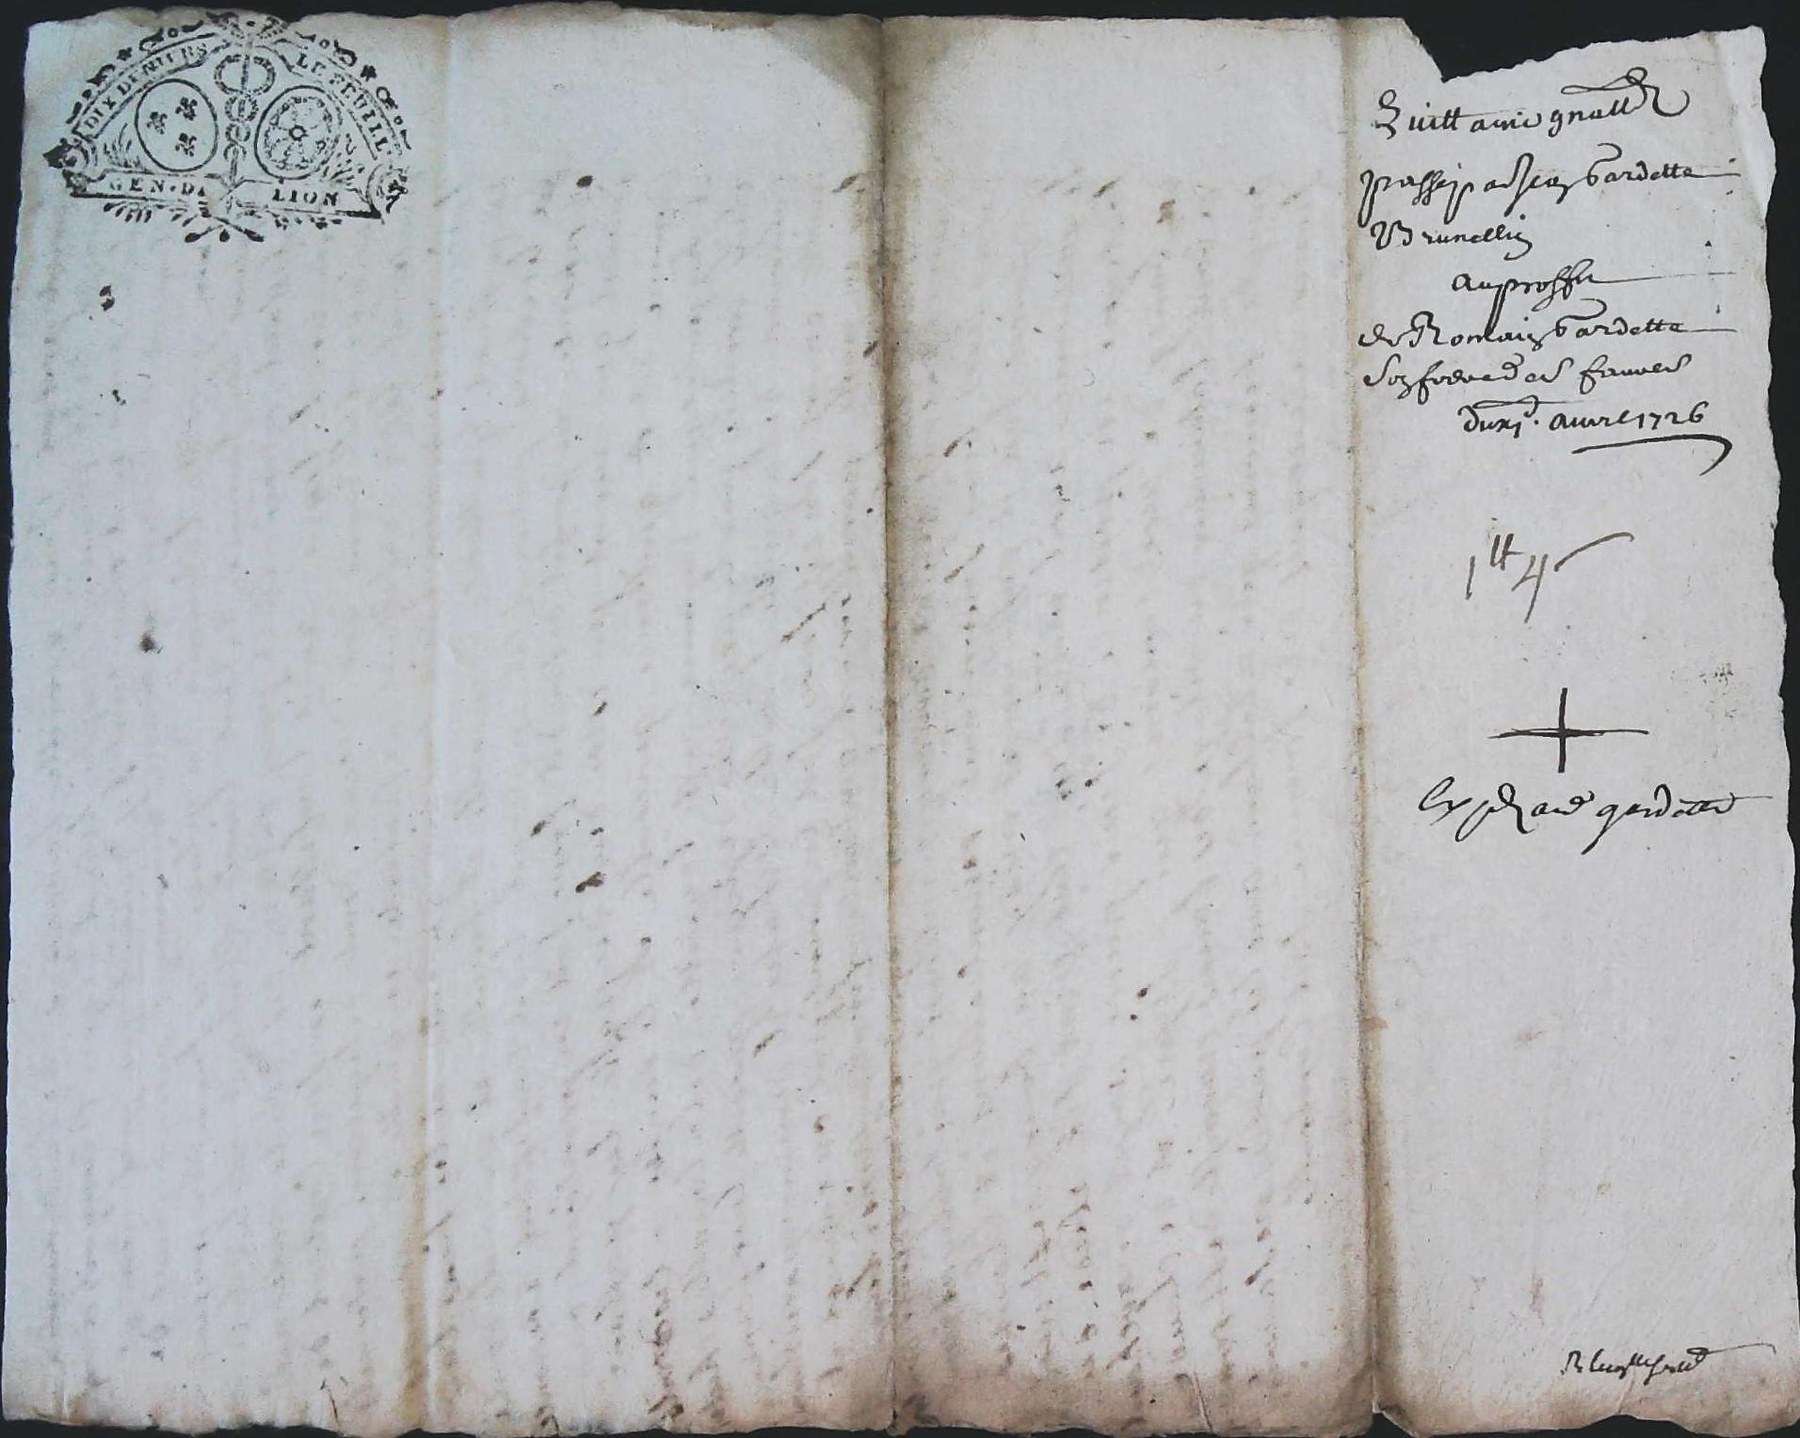 DIX DENIERS LE FEUIL
GEN. DE LION
Quittance gnalle
passé par Jean Gardette
Brunellin
au proffit
de Romain Gardette
Son frere des fauves
du xj.e avvril 1726
1 tt 4 s
gardette